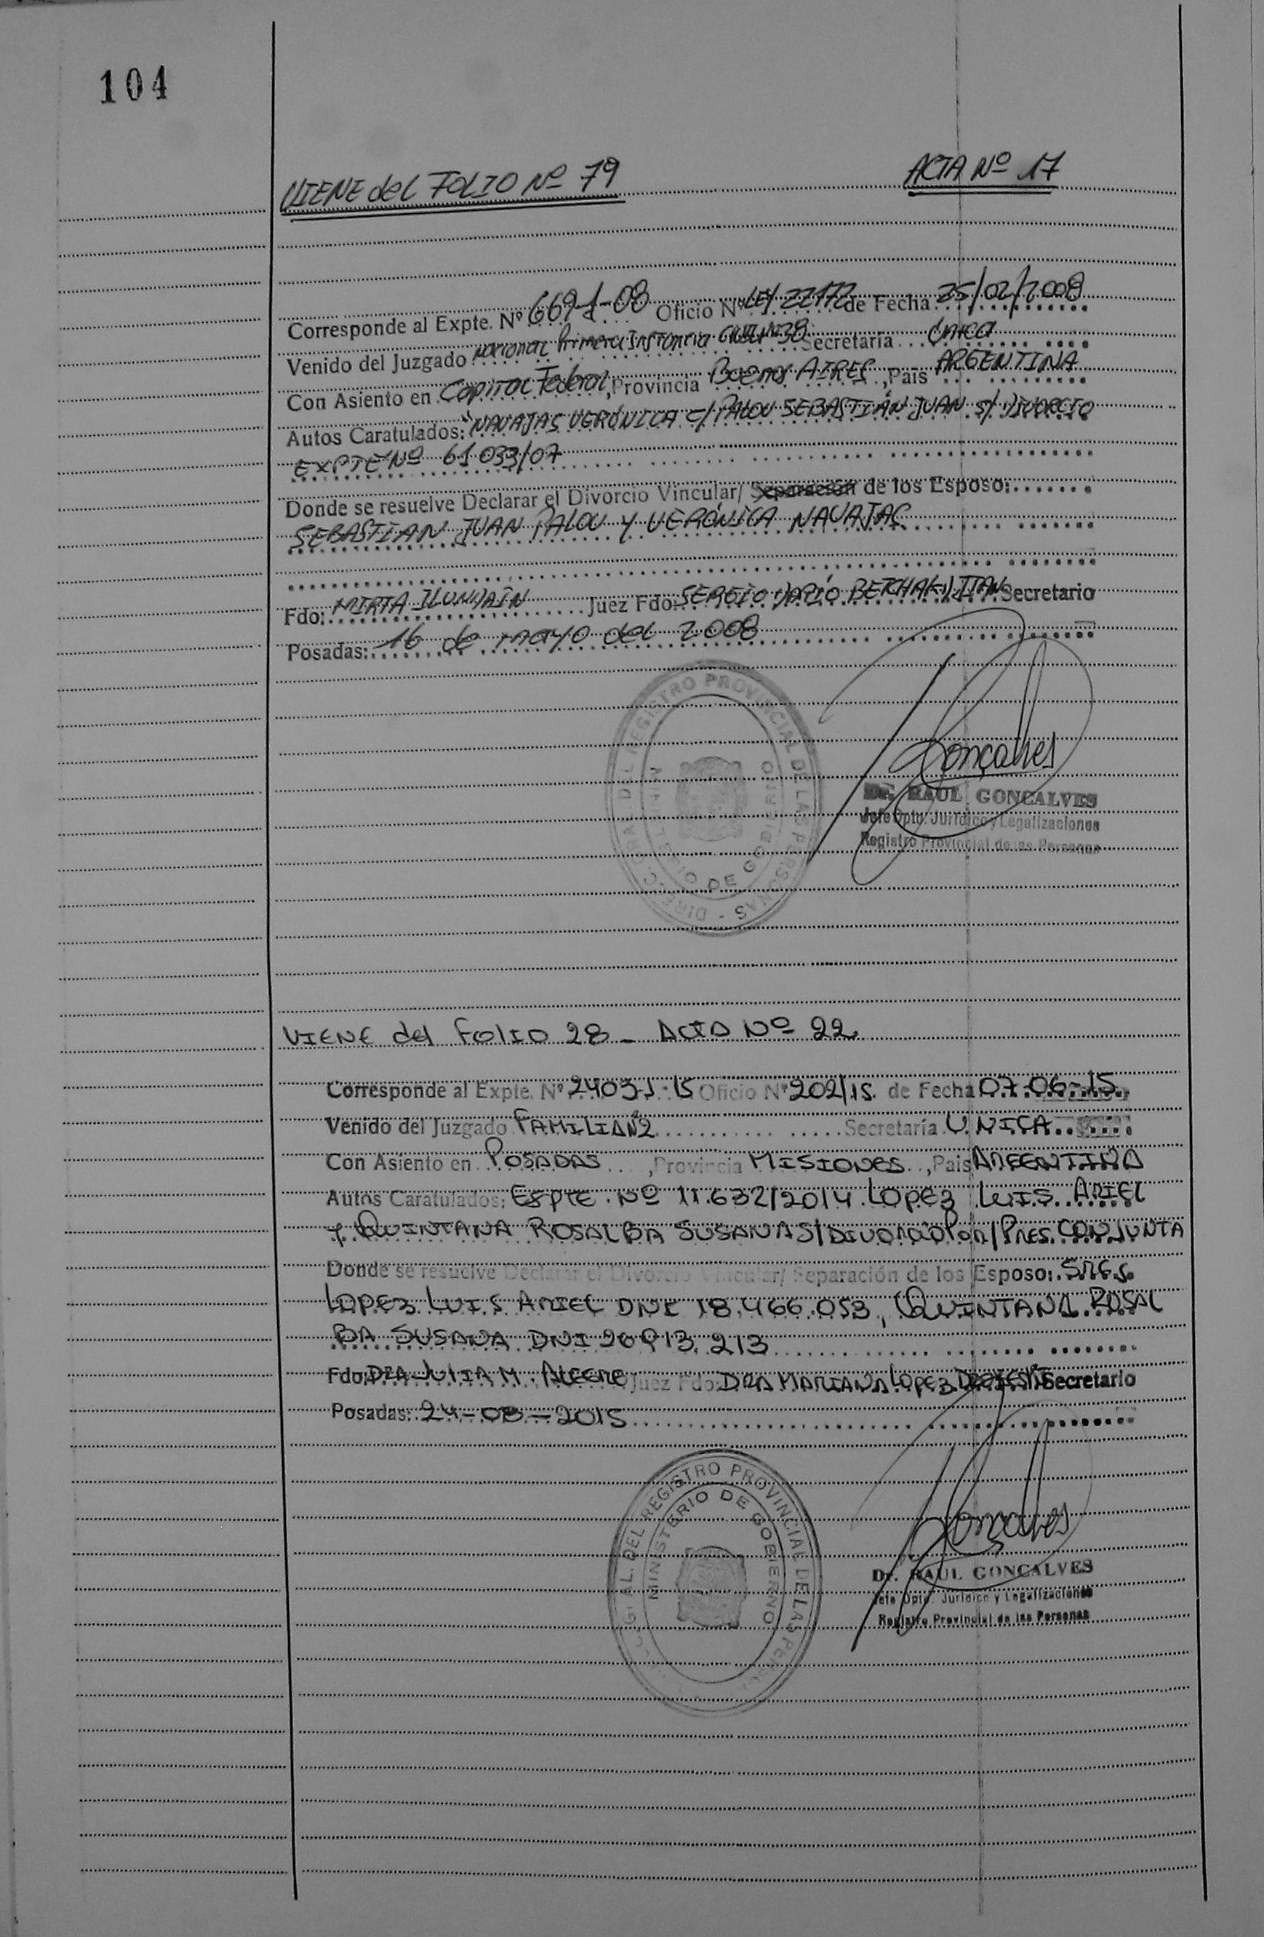 104
VIENE del FOLIO Nº 79 ACTA Nº 17
Corresponde al Expte. Nº 6691-08 Oficio Nº LEY 22172 de Fecha 25/02/2008
Venido del Juzgado nacional Primera Instancia CIVIL Nº 38 Secretaría Única
Con Asiento en Capital Federal, Provincia Buenos AIRES, País ARGENTINA
Autos Caratulados: "NAVAJAS VERÓNICA c/ PALOU SEBASTIÁN JUAN s/ DIVORCIO
EXPTE Nº 61.033/07
Donde se resuelve Declarar el Divorcio Vincular/ Separación de los Esposo:
SEBASTIAN JUAN PALOU Y VERÓNICA NAVAJAS
Fdo: MIRTA ILUNDAIN Juez Fdo: SERGIO DARÍO Secretario
Posadas: 16 de mayo del 2008
DIREC. GRAL. DEL REGISTRO PROVINCIAL DE LAS PERSONAS -
MINISTERIO DE GOBIERNO
Gonçalves
Dr. RAUL GONCALVES
Jefe Dpto. Jurídico y Legalizaciones
Registro Provincial de las Personas
VIENE del FOLIO 28 - ACTA Nº 22
Corresponde al Expte. Nº 2403-J-15 Oficio Nº 202/15 de Fecha 07-06-15
Venido del Juzgado FAMILIA Nº 2 Secretaría UNICA
Con Asiento en POSADAS, Provincia MISIONES, País ARGENTINA
Autos Caratulados: Expte. Nº 11.632/2014 LOPEZ LUIS ARIEL
y QUINTANA ROSALBA SUSANA S/DIVORCIO POR/PRES. CONJUNTA
Donde se resuelve Declarar el Divorcio Vincular/ Separación de los Esposo: SRES.
LOPEZ LUIS ARIEL DNI 18.466.053, QUINTANA ROSAL
BA SUSANA DNI 213
Fdo: DRA JULIA M. ALEGRE Juez Fdo: DRA MARIANA LOPEZ Secretario
Posadas: 24-08-2015
GRAL. DEL REGISTRO PROVINCIAL DE LAS
MINISTERIO DE GOBIERNO
Gonçalves
Dr. RAUL GONCALVES
Jefe Dpto. Jurídico y Legalizaciones
Registro Provincial de las Personas